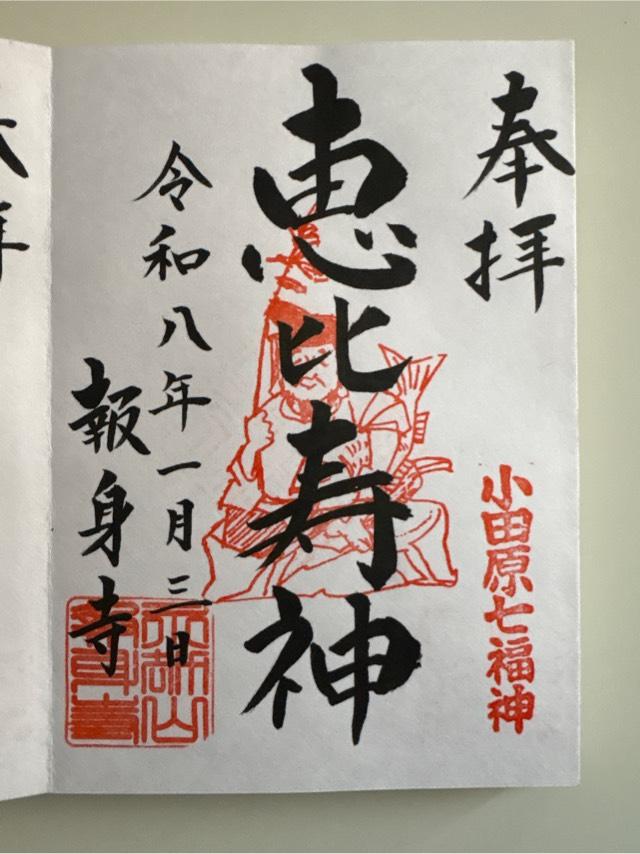 奉拝
小田原七福神
恵比寿神
令和八年一月三日
報身寺